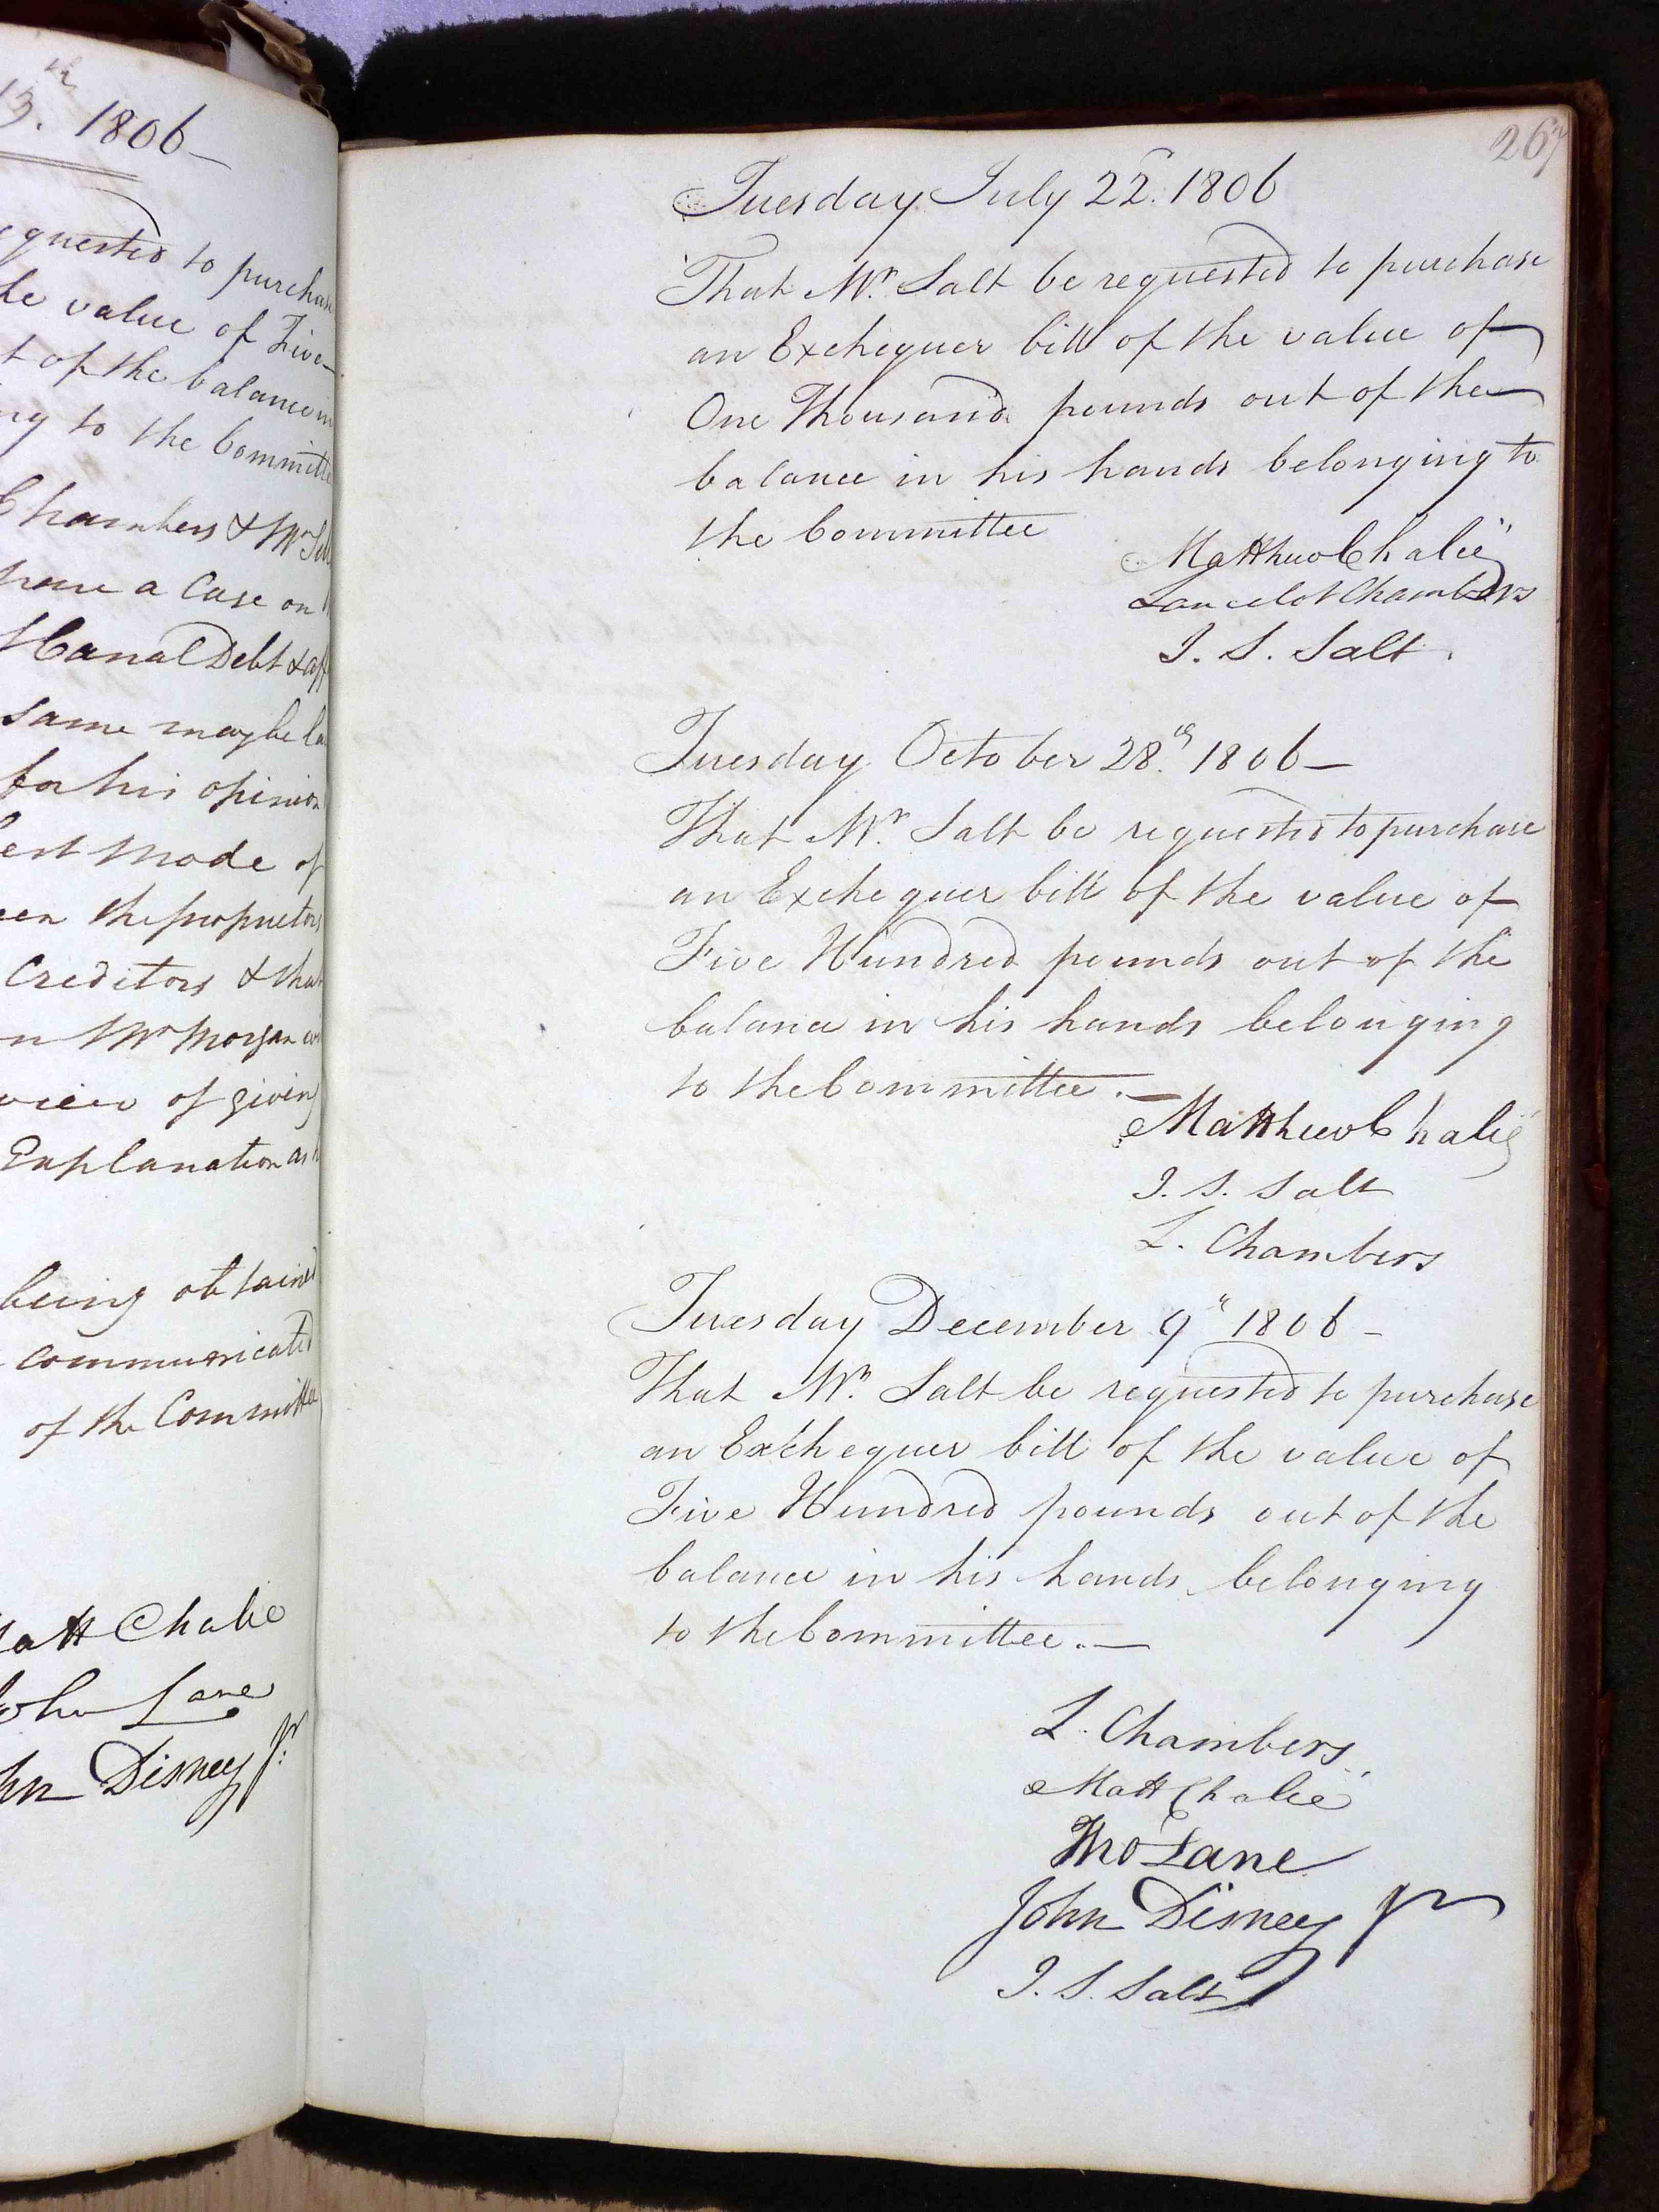 13.th 1806 —
equested to purchase
he value of Five
t of the balance in
ng to the Committe
Chambers & Mr
a Case on
Canal Debt &
same may be
for his opinion
est Mode of
een the proprietors
Creditors & that
on Mr Morgan
view of giving
Explanation as
being obtained
communicated
of the Committee
Matt Chalie
John Lane
John Disney Jr.
267
Tuesday July 22. 1806
That Mr. Salt be requested to purchase
an Exchequer bill of the value of
One Thousand pounds out of the
balance in his hands belonging to
the Committee
Matthew Chalie
Lancelot Chambers
J. S. Salt.
Tuesday October 28.th 1806 —
That Mr. Salt be requested to purchase
an Exchequer bill of the value of
Five Hundred pounds out of the
balance in his hands belonging
to the Committee. —
Matthew Chalie
J. S. Salt
L. Chambers
Tuesday December 9th 1806 —
That Mr. Salt be requested to purchase
an Exchequer bill of the value of
Five Hundred pounds out of the
balance in his hands belonging
to the Committee. —
L. Chambers
Matt Chalie
Tho Lane
John Disney Jr
J. S. Salt